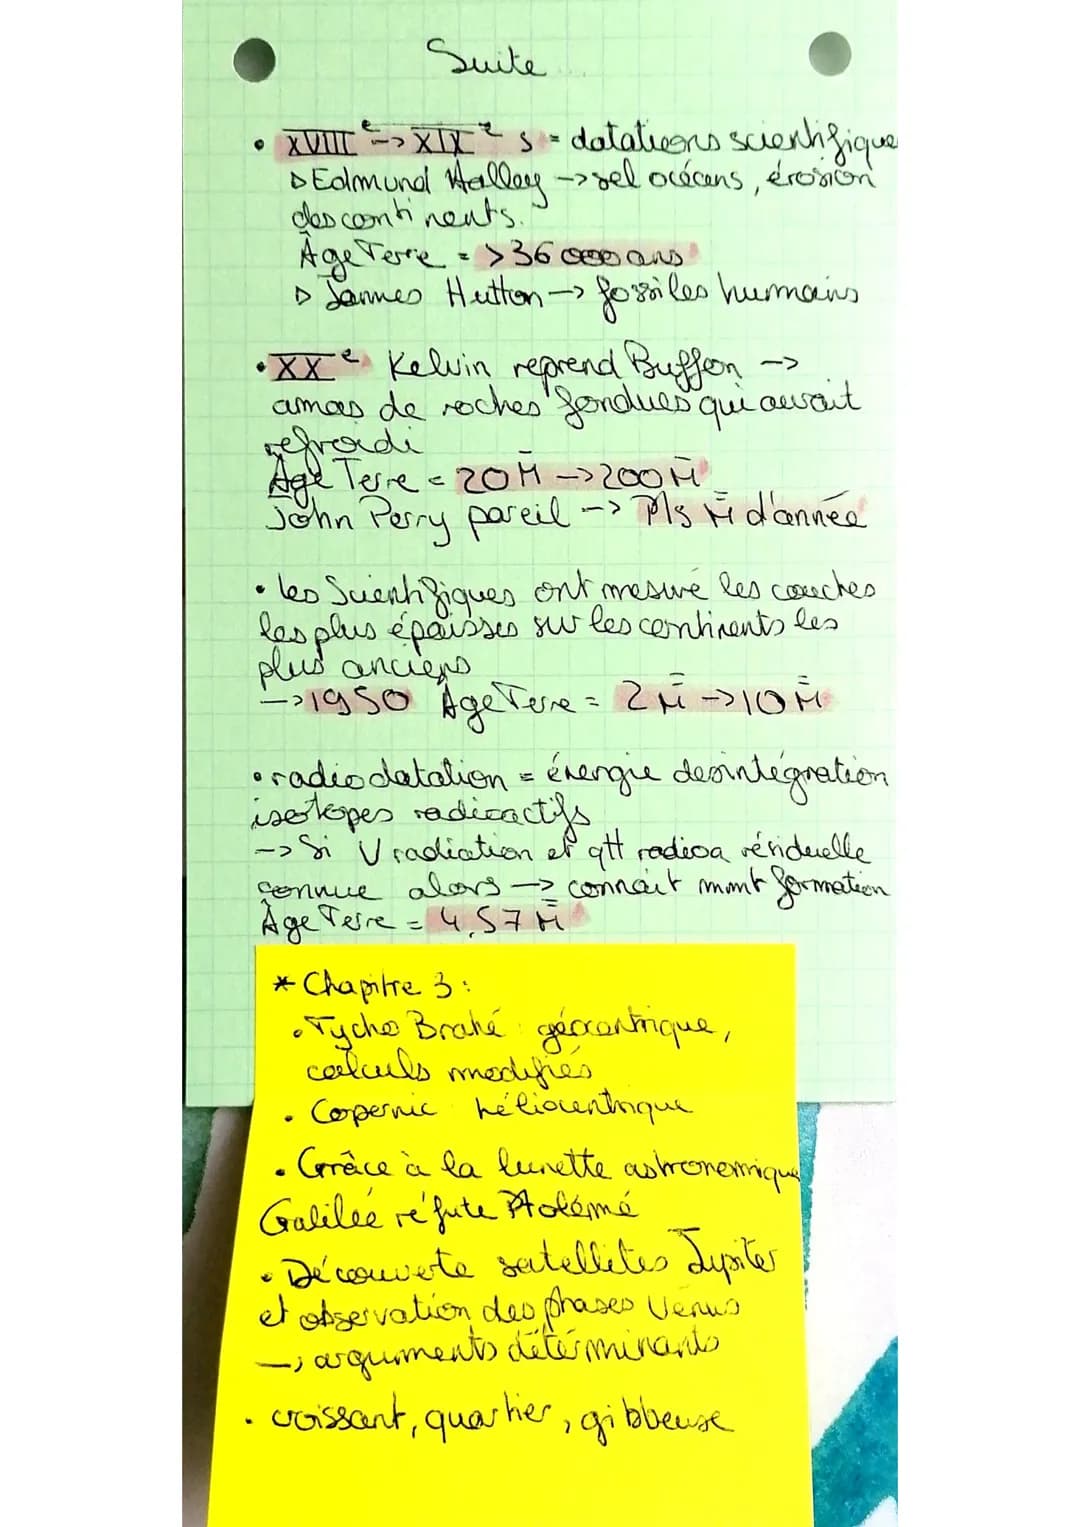 Suite ...
• XVIIIe -> XIXe s = datations scientifique
▷ Edmund Halley -> sel océcans, érosion
des continents.
Âge Terre = > 36 000 ans
▷ Jammes Hutton -> fossiles humains
• XXe Kelvin reprend Buffon ->
amas de roches fondues qui aurait
refroidi
Âge Terre = 20 M -> 200 M
John Perry pareil -> Pls M̄ d'année
• les Scientifiques ont mesuré les couches
les plus épaisses sur les continents les
plus anciens
-> 1950 Âge Terre = 2 M̄ -> 10 M̄
• radiodatation = énergie desintégration
isotopes radioactifs
-> Si V radiation et qtt radioa résiduelle
connue alors -> connait mmt formation
Âge Terre = 4,57 M̄
* Chapitre 3 :
• Tycho Brahé : géocentrique,
calculs modifiés
• Copernic : héliocentrique
• Grâce à la lunette astronomique
Galilée réfute Ptolémé
• Découverte satellites Jupiter
et observation des phases Vénus
-> arguments détérminants
• croissant, quartier, gibbeuse